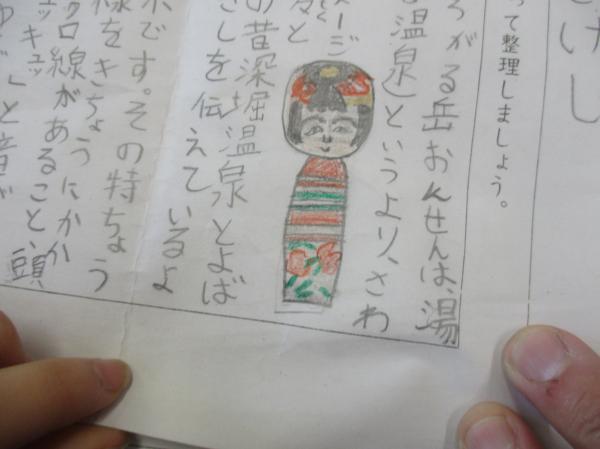 けし
って整理しましょう。
ろがる岳おんせんは、湯
温泉」というより、さわ
ージ
々と
の昔深堀温泉とよば
さしを伝えているよ
です。その特ちょう
線をきちょうにかか
ロク線があること、頭
と音が